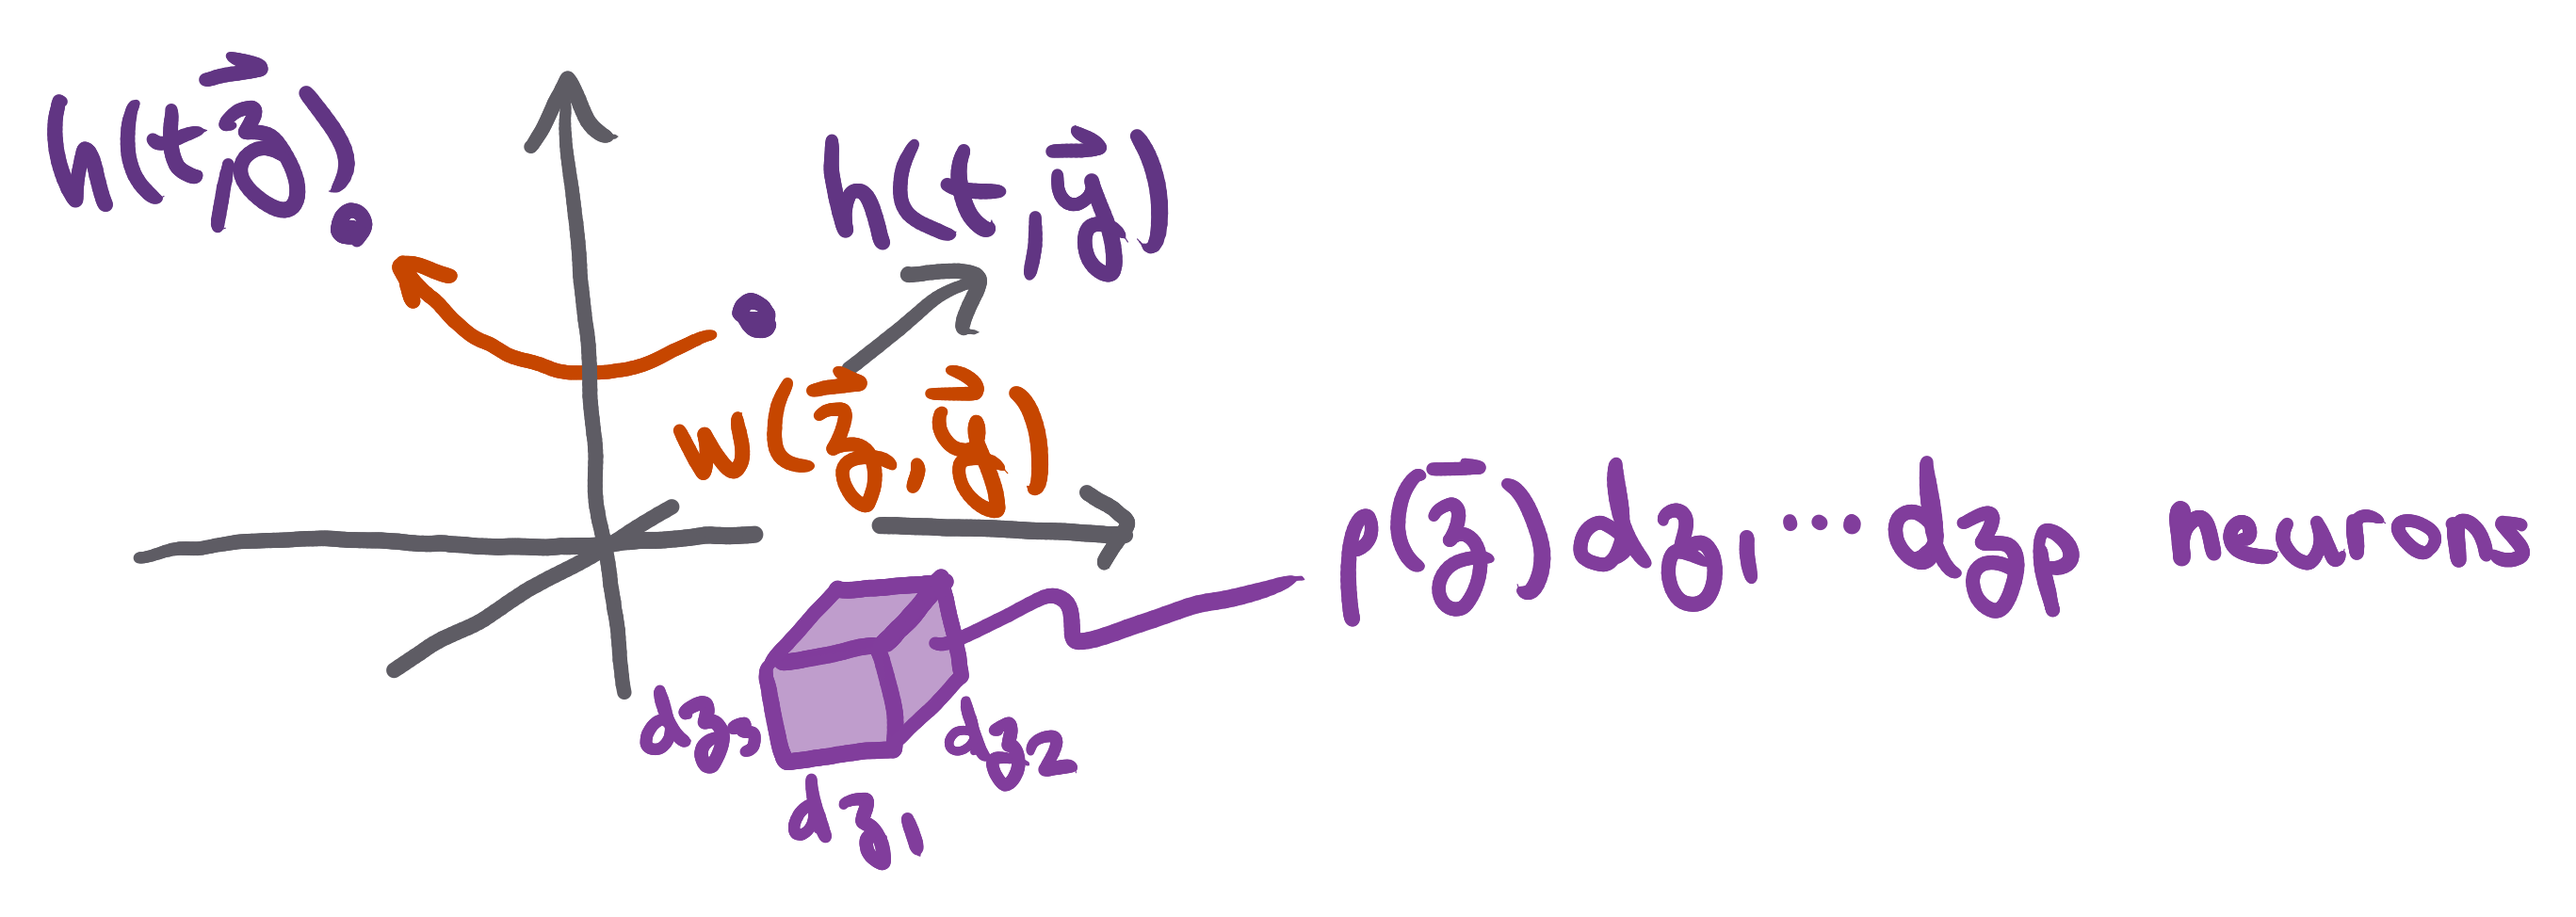 h(t,z⃗)
h(t,y⃗)
w(z⃗,y⃗)
ρ(z̄)dz₁⋯dzₚ neurons
dz₃
dz₂
dz₁